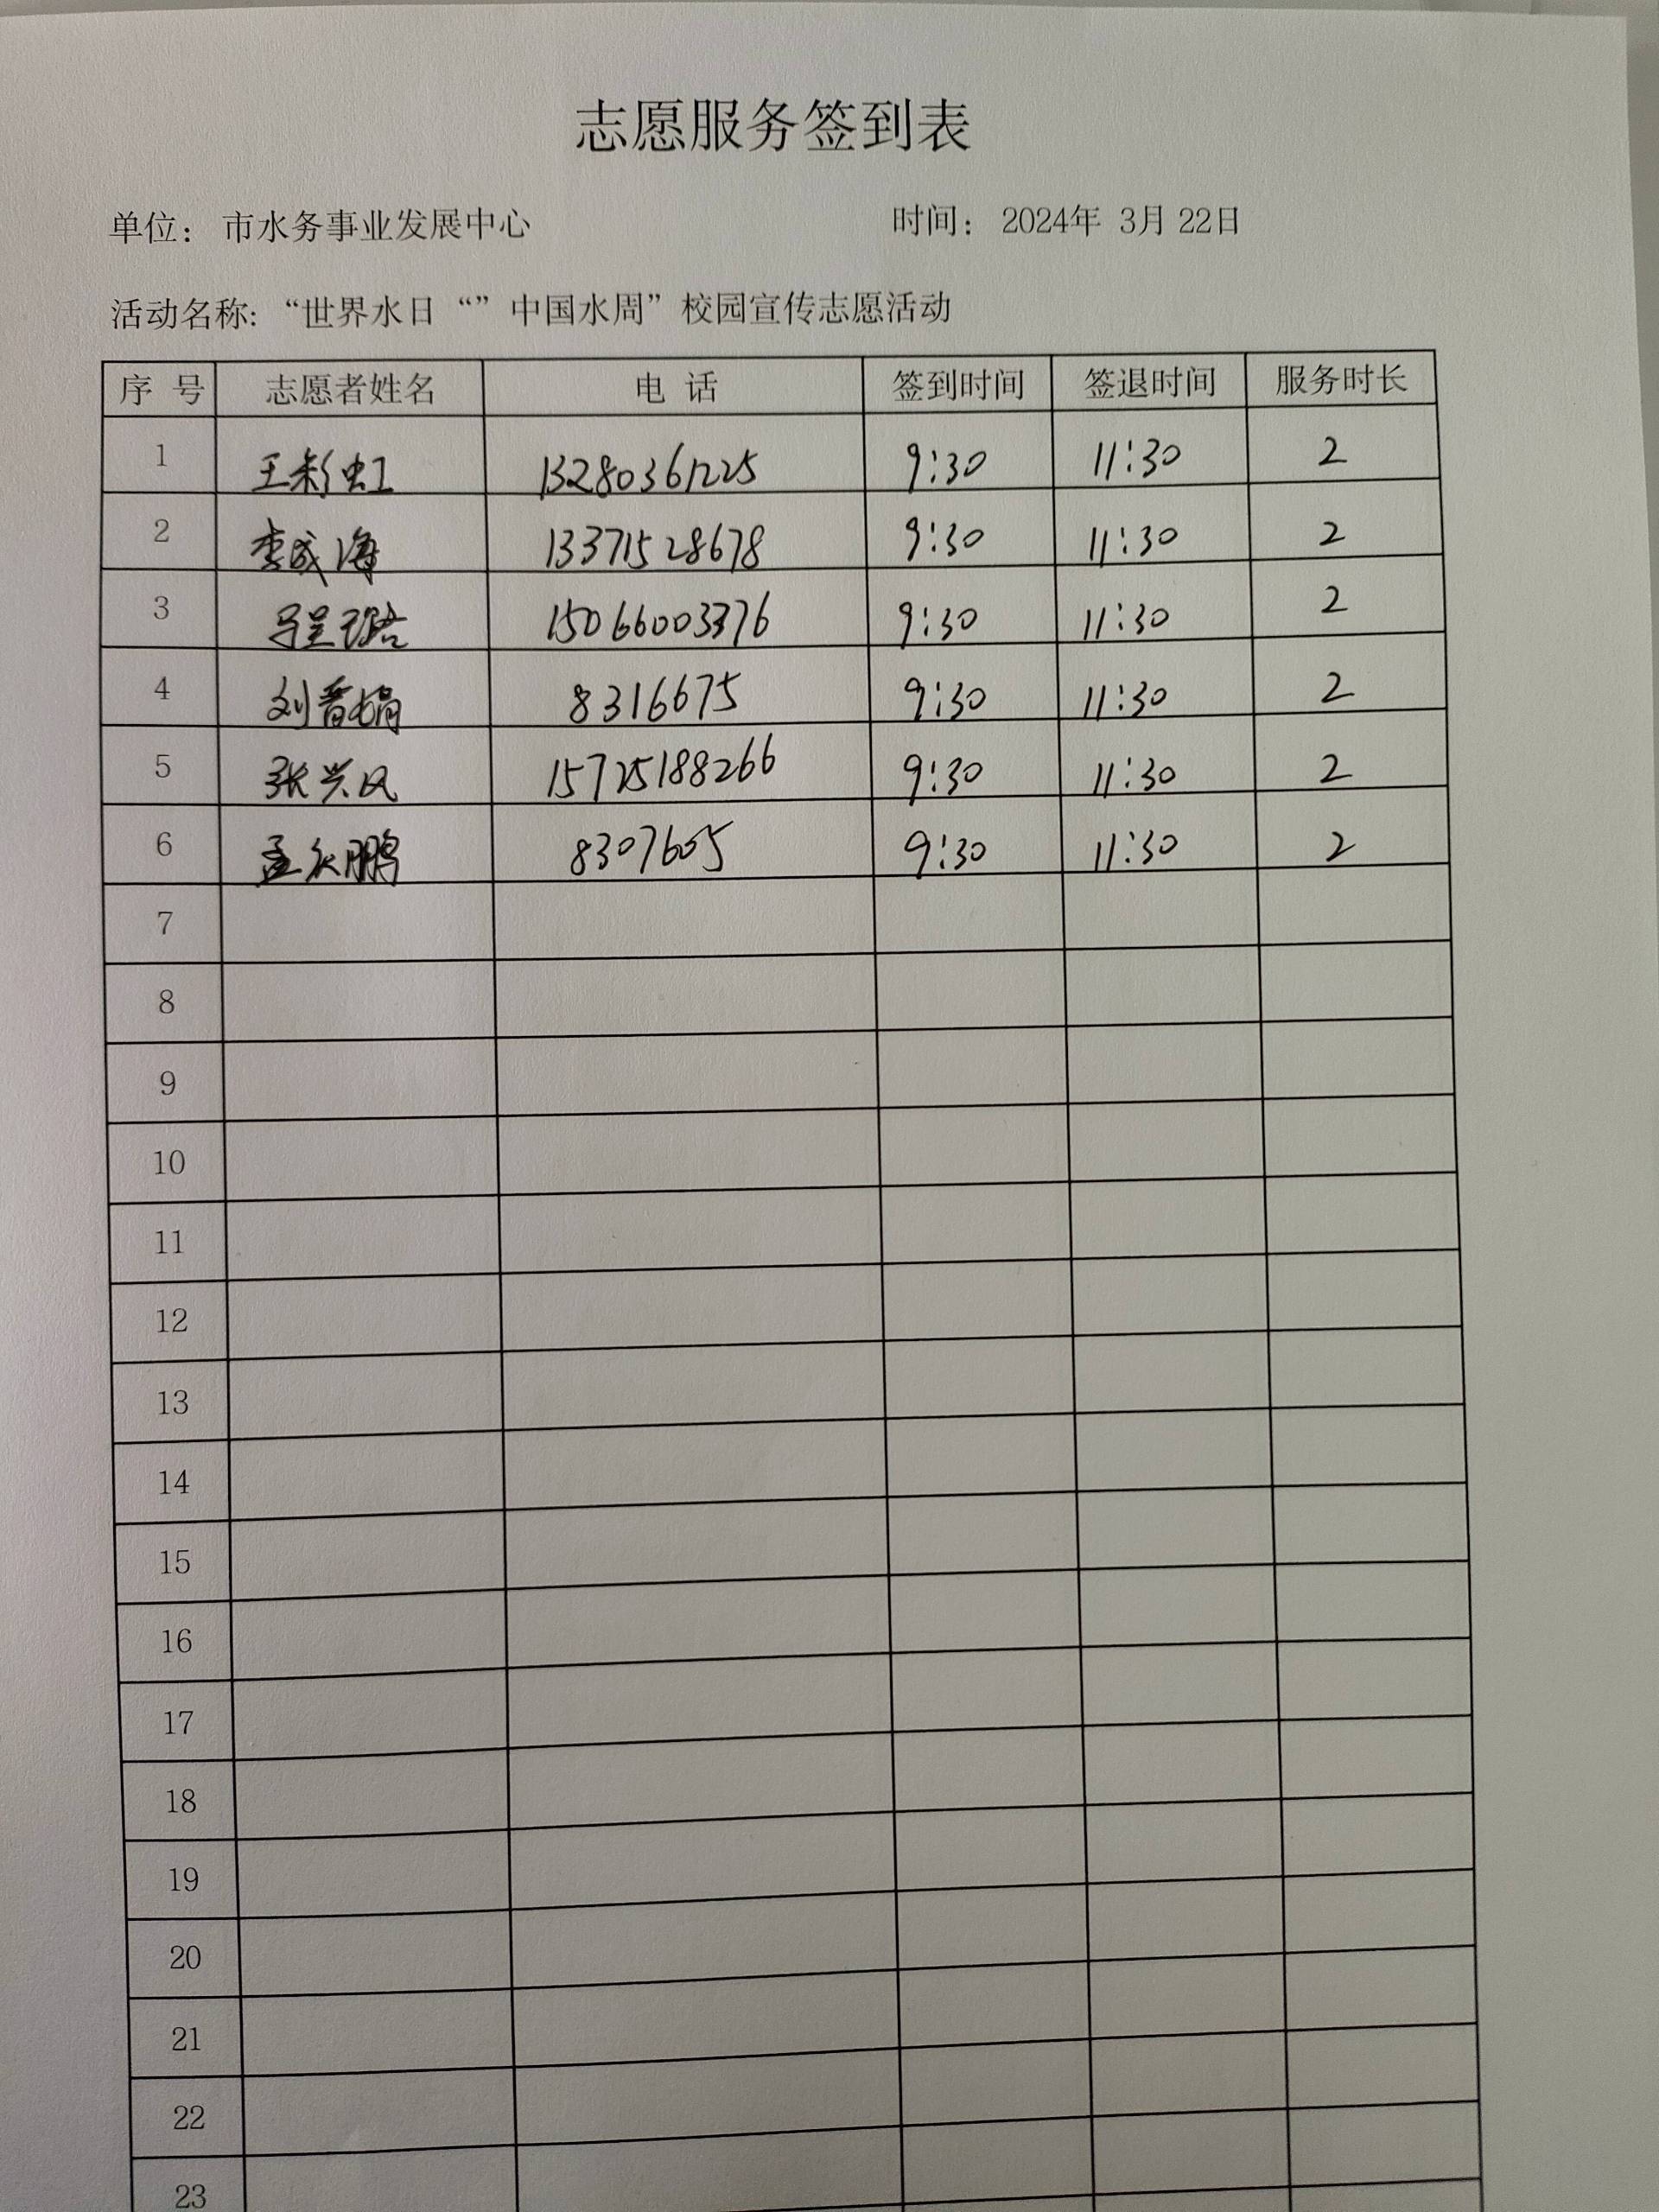 志愿服务签到表
单位： 市水务事业发展中心 时间： 2024年 3月 22日
活动名称: “世界水日“”中国水周”校园宣传志愿活动
序 号 志愿者姓名 电 话 签到时间 签退时间 服务时长
1 王彩虹 13280361225 9:30 11:30 2
2 李成海 13371528678 9:30 11:30 2
3 15066003376 9:30 11:30 2
4 刘晋娟 8316675 9:30 11:30 2
5 张兴风 15725188266 9:30 11:30 2
6 孟庆鹏 8307605 9:30 11:30 2
7
8
9
10
11
12
13
14
15
16
17
18
19
20
21
22
23